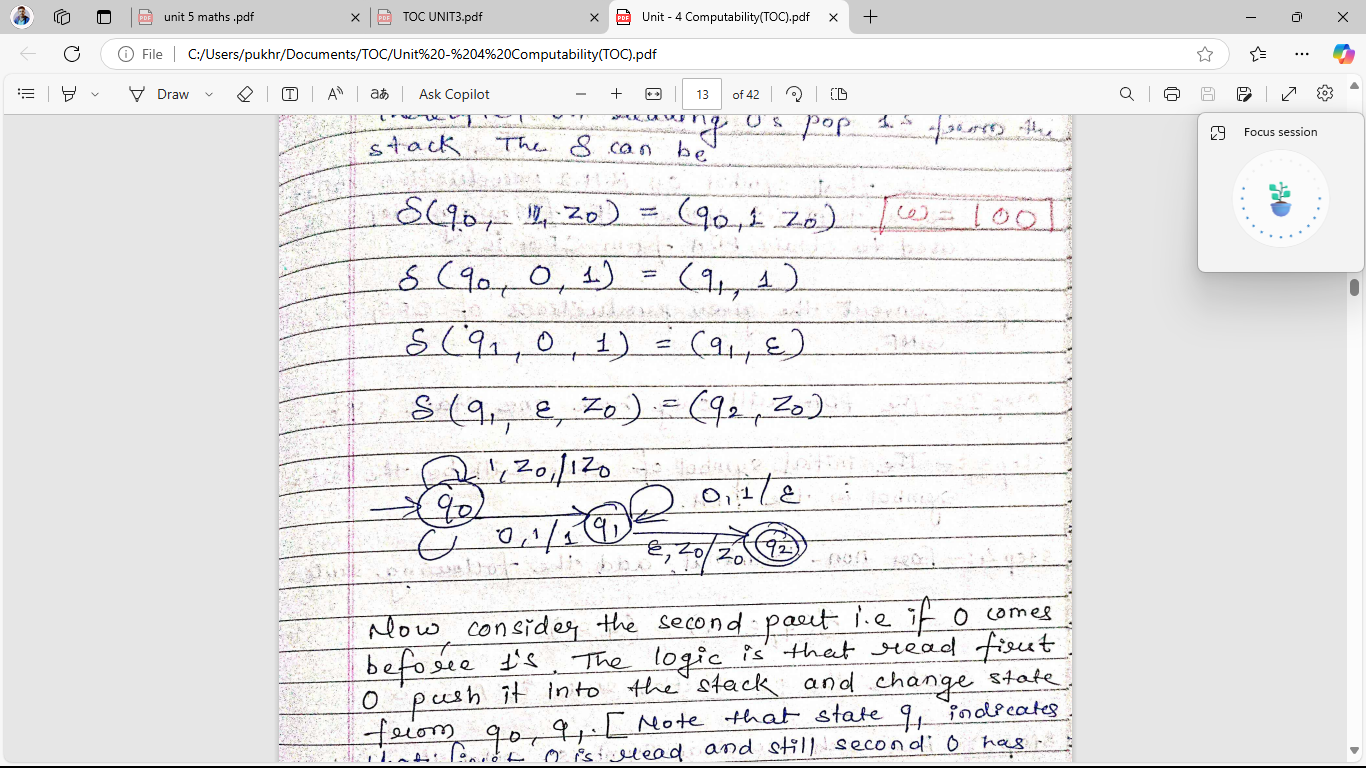 unit 5 maths .pdf
TOC UNIT3.pdf
Unit - 4 Computability(TOC).pdf
File
C:/Users/pukhr/Documents/TOC/Unit%20-%204%20Computability(TOC).pdf
Draw
Ask Copilot
13 of 42
Focus session
reading 0's pop 1's from the
stack. The δ can be
δ(q0, 1, z0) = (q0, 1 z0) ω = 100
δ(q0, 0, 1) = (q1, 1)
δ(q1, 0, 1) = (q1, ε)
δ(q1, ε, z0) = (q2, z0)
1, z0, /1z0
q0
0, 1/1
q1
0, 1/ε
ε, z0/z0
q2
Now, consider the second part i.e if 0 comes
before 1's. The logic is that read first
0 push it into the stack and change state
from q0, q1. [Note that state q1 indicates
that first 0 is read and still second 0 has